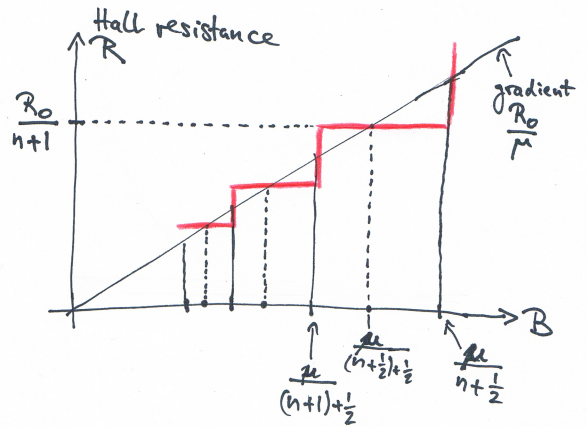 Hall resistance
R
R₀/(n+1)
gradient
R₀/μ
B
μ/((n+1)+½)
μ/((n+½)+½)
μ/(n+½)